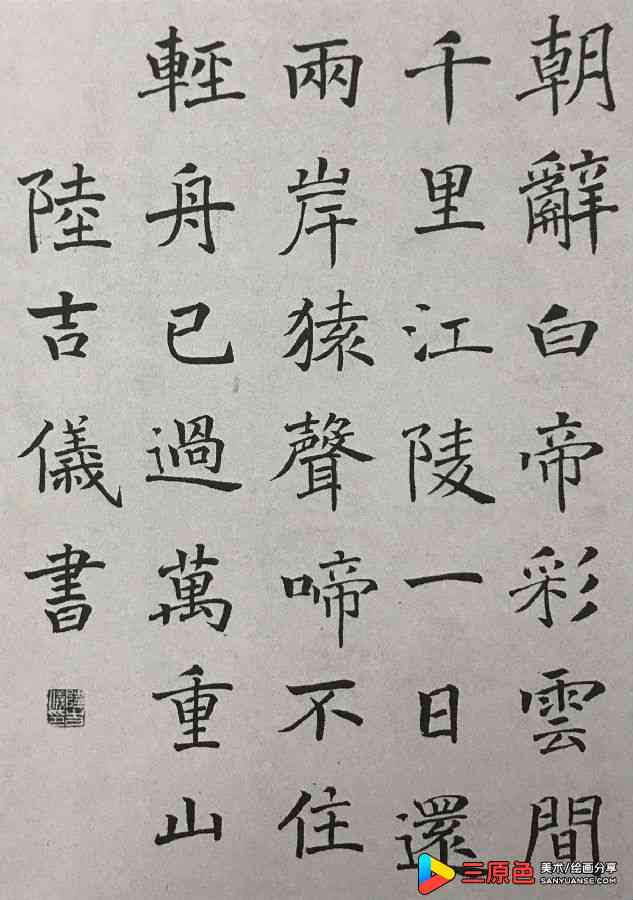 朝辭白帝彩雲間
千里江陵一日還
兩岸猿聲啼不住
輕舟已過萬重山
陸吉儀書
三原色 美术/绘画分享
SANYUANSE.COM